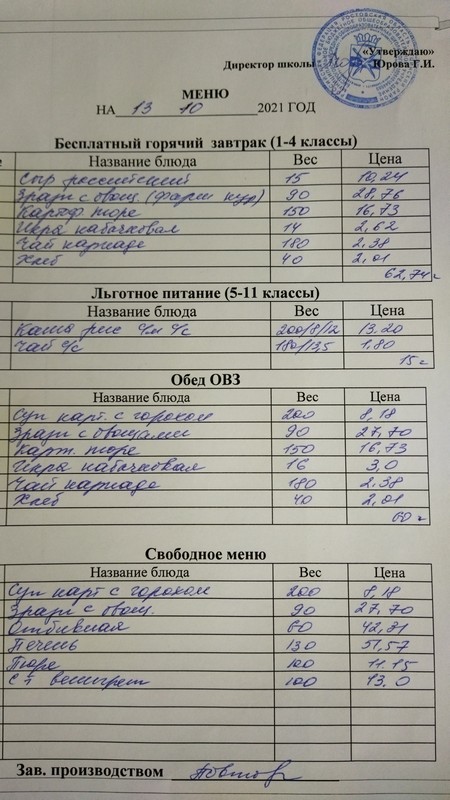 «Утверждаю»
Директор школы Юрова Г.И.
МЕНЮ
НА 13 10 2021 ГОД
Бесплатный горячий завтрак (1-4 классы)
Название блюда Вес Цена
Сыр российский 15 10,24
Зразы с овощ. (фарш кур) 90 28,76
Картоф пюре 150 16,73
Икра кабачковая 14 2,62
Чай каркаде 180 2,38
Хлеб 40 2,01
62,74
Льготное питание (5-11 классы)
Название блюда Вес Цена
Каша рис 200/8/12 13.20
Чай с/с 180/13,5 1,80
15
Обед ОВЗ
Название блюда Вес Цена
Суп карт. с горохом 200 8,18
Зразы с овощами 90 27,70
Карт. пюре 150 16,73
Икра кабачковая 16 3,0
Чай каркаде 180 2.38
Хлеб 40 2,01
60
Свободное меню
Название блюда Вес Цена
Суп карт с горохом 200 8,18
Зразы с овощ. 90 27,70
Отбивная 60 42,81
Печень 130 51,57
Пюре 100 11.15
с-т винегрет 100 13.0
Зав. производством